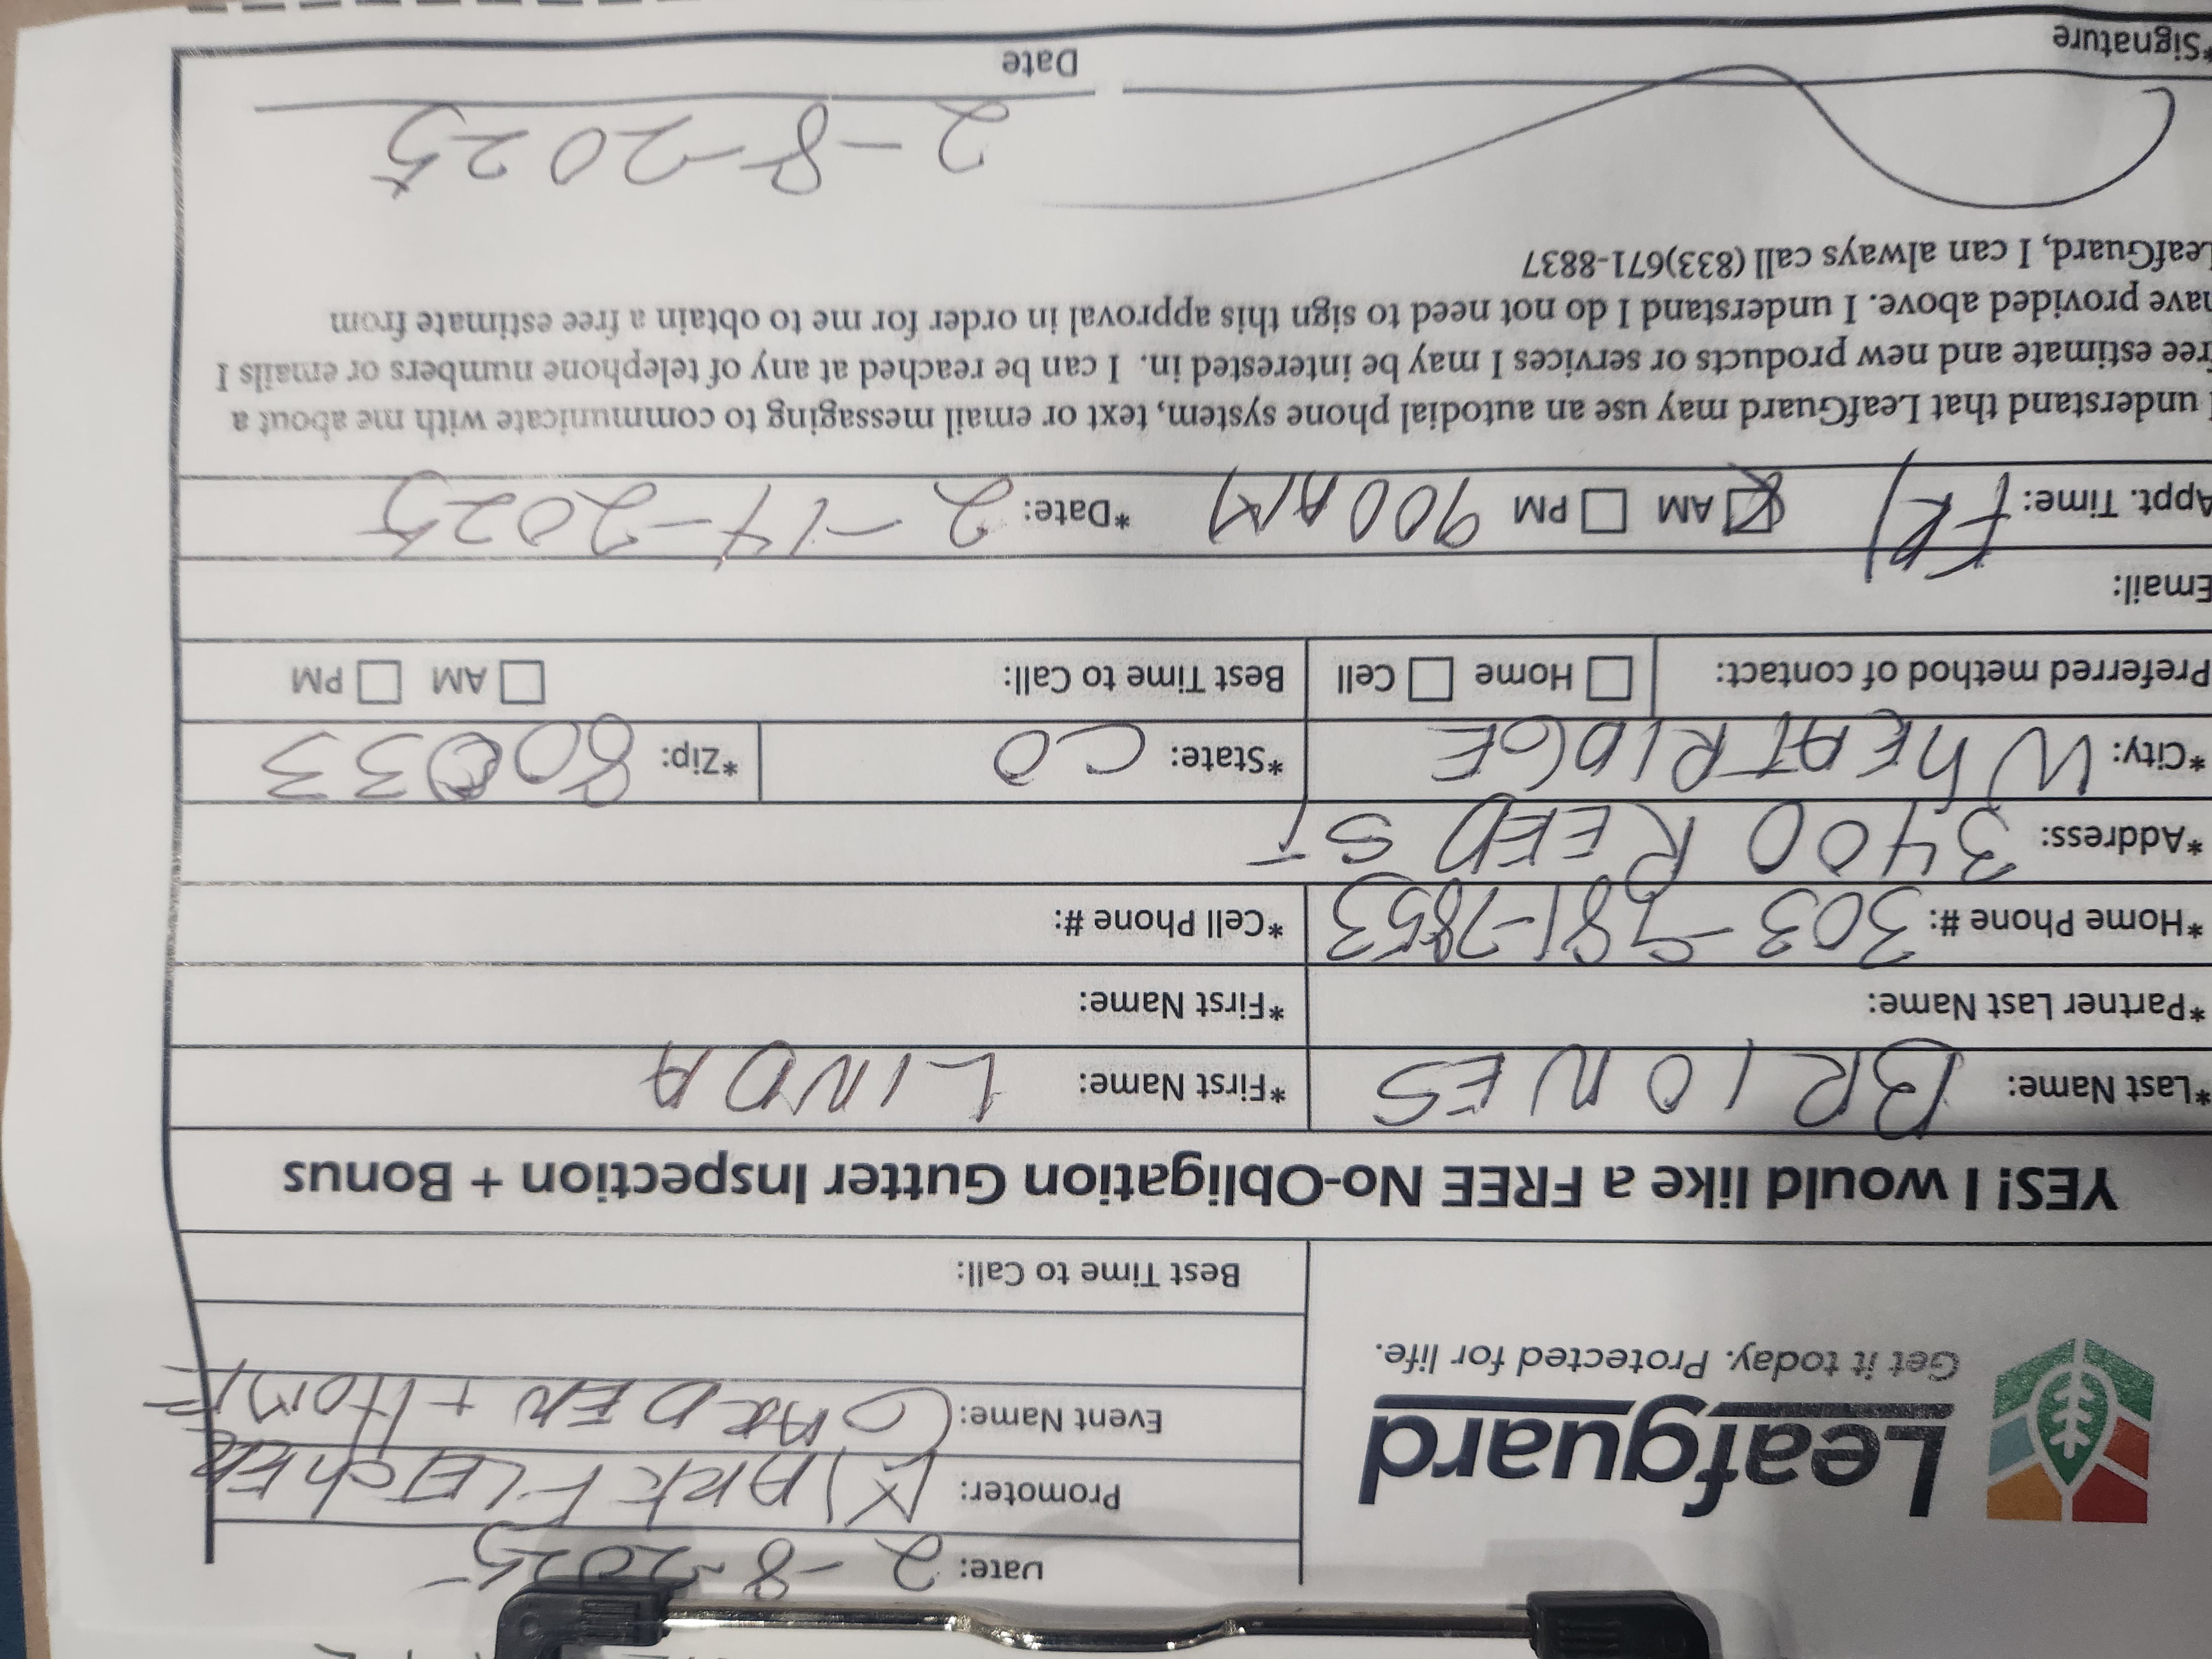 Leafguard
Get it today. Protected for life.
Date: 2-8-2025
Promoter: MARK FLETCHER
Event Name: GARDEN + HOME
Best Time to Call:
YES! I would like a FREE No-Obligation Gutter Inspection + Bonus
*Last Name: BRIONES *First Name: LINDA
*Partner Last Name: *First Name:
*Home Phone #: 303-981-7853 *Cell Phone #:
*Address: 3400 REED ST
*City: WHEATRIDGE *State: CO *Zip: 80033
Preferred method of contact: Home Cell Best Time to Call: AM PM
Email:
Appt. Time: FRI AM PM 900AM *Date: 2-14-2025
I understand that LeafGuard may use an autodial phone system, text or email messaging to communicate with me about a
free estimate and new products or services I may be interested in. I can be reached at any of telephone numbers or emails I
have provided above. I understand I do not need to sign this approval in order for me to obtain a free estimate from
LeafGuard, I can always call (833)671-8837
2-8-2025
*Signature Date